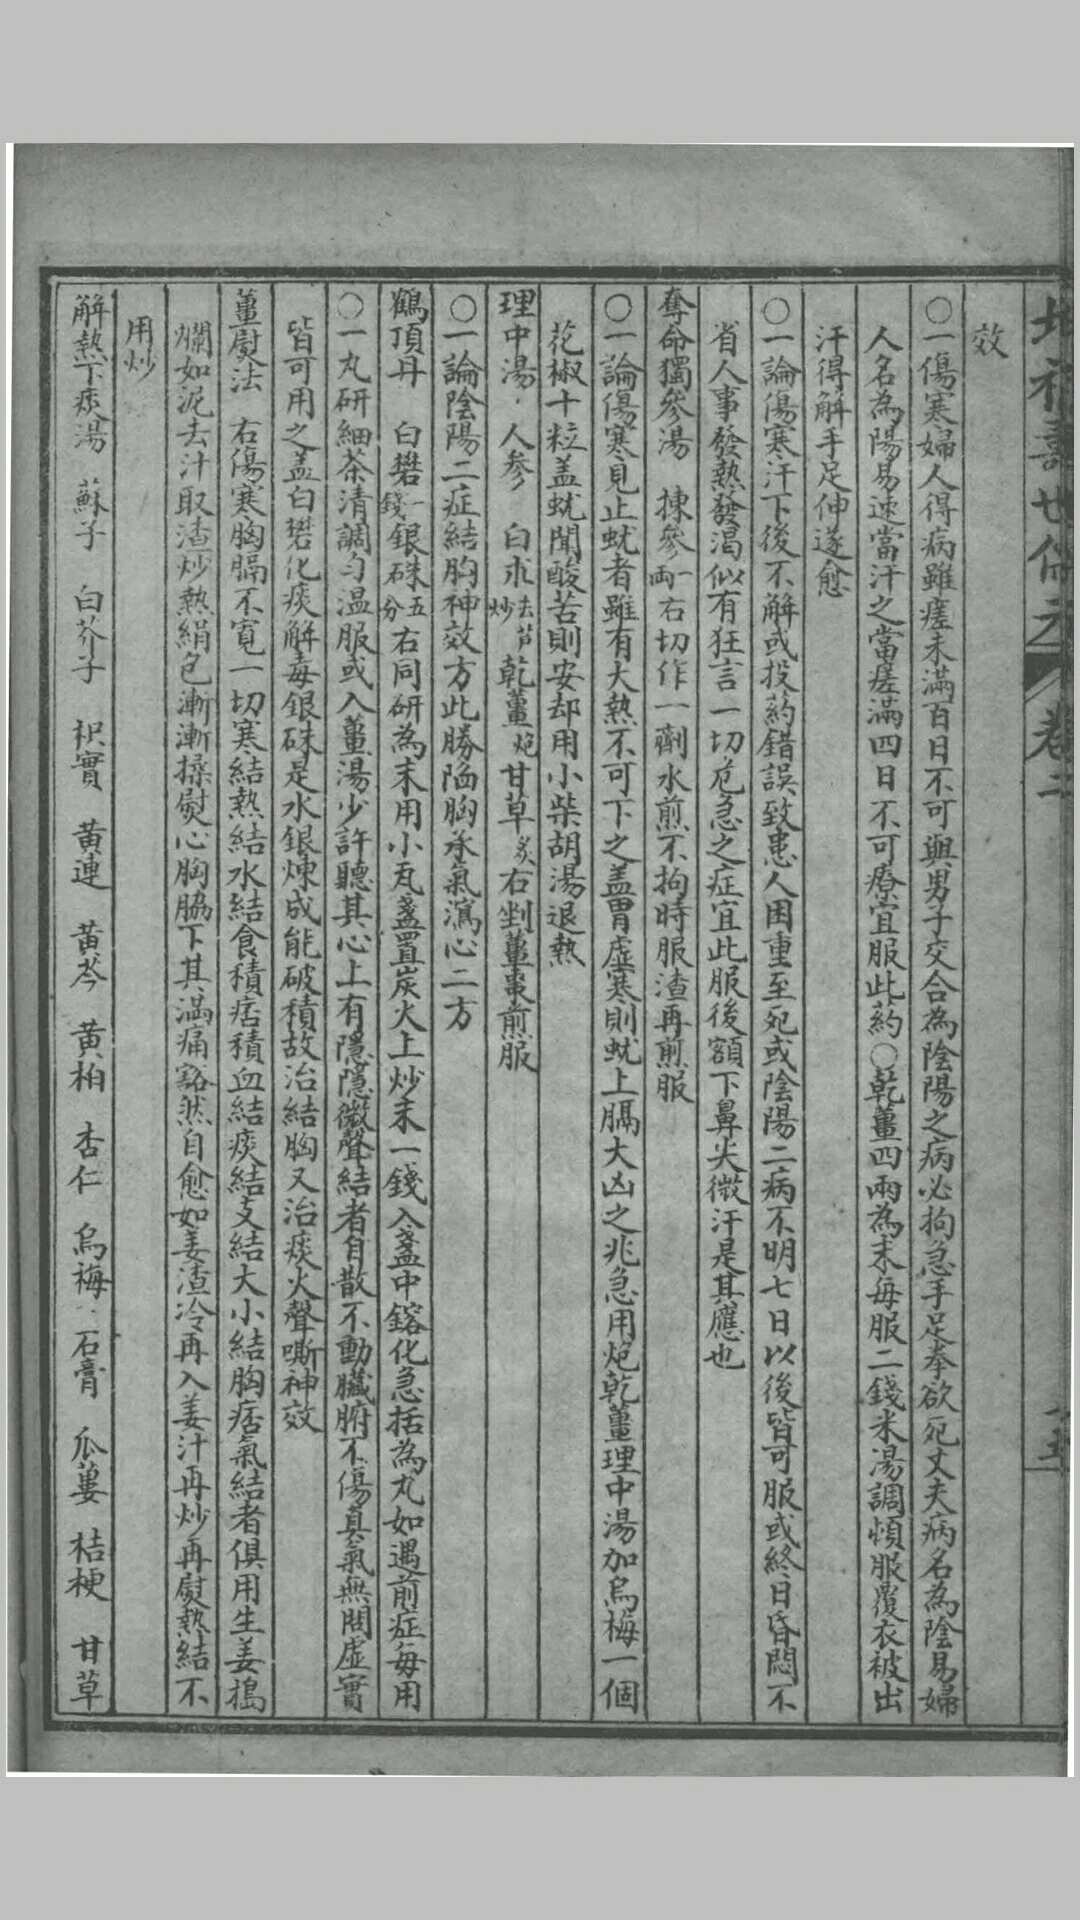 壽世保元 卷二
效
○一傷寒婦人得病雖瘥未滿百日不可與男子交合為陰陽之病必拘急手足拳欲死丈夫病名為陰易婦
人名為陽易速當汗之當瘥滿四日不可療宜服此药○乾薑四兩為末每服二錢米湯調頓服覆衣被出
汗得解手足伸遂愈
○一論傷寒汗下後不解或投药錯誤致患人困重至死或陰陽二病不明七日以後皆可服或終日昏悶不
省人事發熱發渴似有狂言一切危急之症宜此服後額下鼻尖微汗是其應也
奪命獨參湯 揀參一両右切作一劑水煎不拘時服渣再煎服
○一論傷寒見止蚘者雖有大熱不可下之盖胃虛寒則蚘上膈大凶之兆急用炮乾薑理中湯加烏梅一個
花椒十粒盖蚘聞酸苦則安却用小柴胡湯退熱
理中湯 人参 白朮去芦炒 乾薑炮甘草炙右剉薑棗煎服
○一論陰陽二症結胸神效方此勝陥胸承氣瀉心二方
鶴頂丹 白礬一錢銀硃五分右同研為末用小瓦盞置炭火上炒末一錢入盞中鎔化急括為丸如遇前症每用
○一丸研細茶清調勻温服或入薑湯少許聽其心上有隱隱微聲結者自散不動臟腑不傷真氣無問虛實
皆可用之盖白礬化痰解毒銀硃是水銀煉成能破積故治結胸又治痰火聲嘶神效
薑熨法 右傷寒胸膈不寬一切寒結熱結水結食積痞積血結痰結支結大小結胸痞氣結者俱用生姜搗
爛如泥去汁取渣炒熱絹包漸漸揉熨心胸脇下其滿痛豁然自愈如姜渣冷再入姜汁再炒再熨熱結不
用炒
解熱下痰湯 蘇子 白芥子 枳實 黄連 黄芩 黄柏 杏仁 烏梅 石膏 瓜蔞 桔梗 甘草